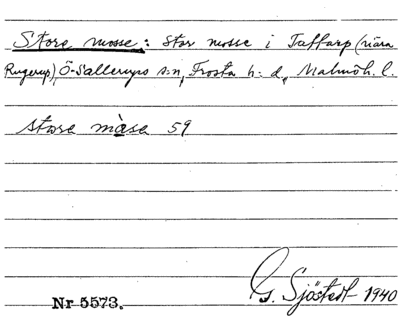 Store mosse: Stor mosse i Taffarp (nära
Rugerup), Ö-Sallerups s:n, Frosta h:d, Malmöh. l.
stora màsa 59
G. Sjöstedt 1940
Nr 5573.